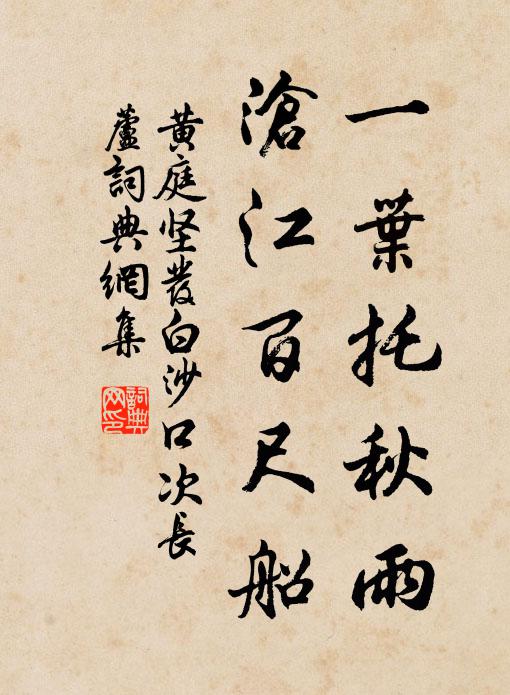 一葉托秋雨
滄江百尺船
黄庭坚發白沙口次長
蘆詞典網集
詞典
网印